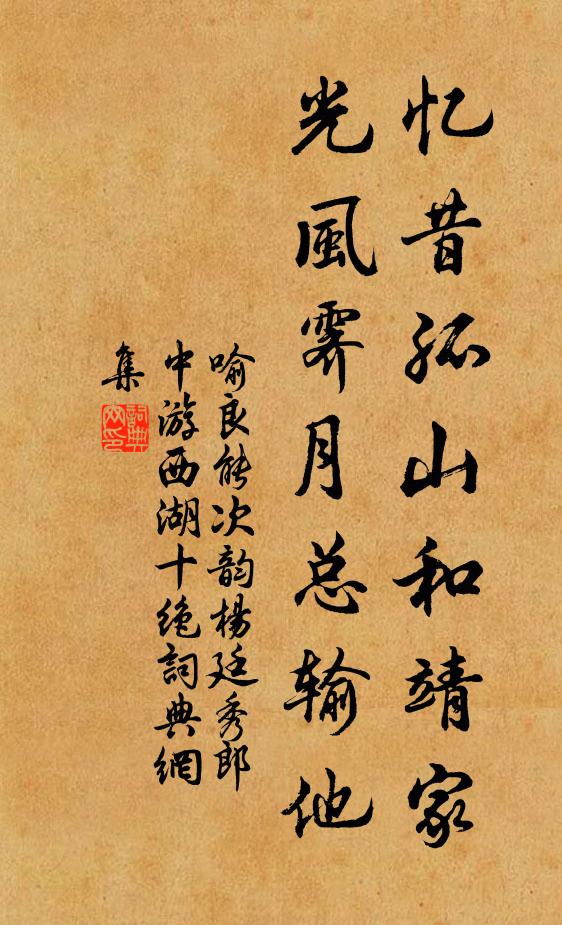 忆昔孤山和靖家
光風霽月总输他
喻良能次韵楊廷秀郎
中游西湖十绝詞典網
集
詞典網印